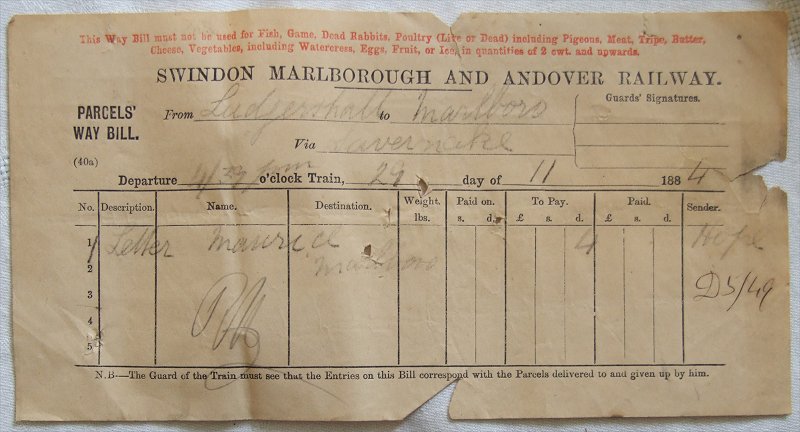 This Way Bill must not be used for Fish, Game, Dead Rabbits, Poultry (Live or Dead) including Pigeons, Meat, Tripe, Butter,
Cheese, Vegetables, including Watercress, Eggs, Fruit, or Ice, in quantities of 2 cwt. and upwards.
SWINDON MARLBOROUGH AND ANDOVER RAILWAY.
PARCELS' WAY BILL.
(40a)
From Ludgershall to Marlboro
Guards' Signatures.
Via Savernake
Departure o'clock Train, 29 day of 11 1884
No. Description. Name. Destination. Weight. lbs. Paid on. s. d. To Pay. £ s. d. Paid. £ s. d. Sender.
1 Letter Maurice 4 Hope
2
3 D5/49
4
5
N.B—The Guard of the Train must see that the Entries on this Bill correspond with the Parcels delivered to and given up by him.